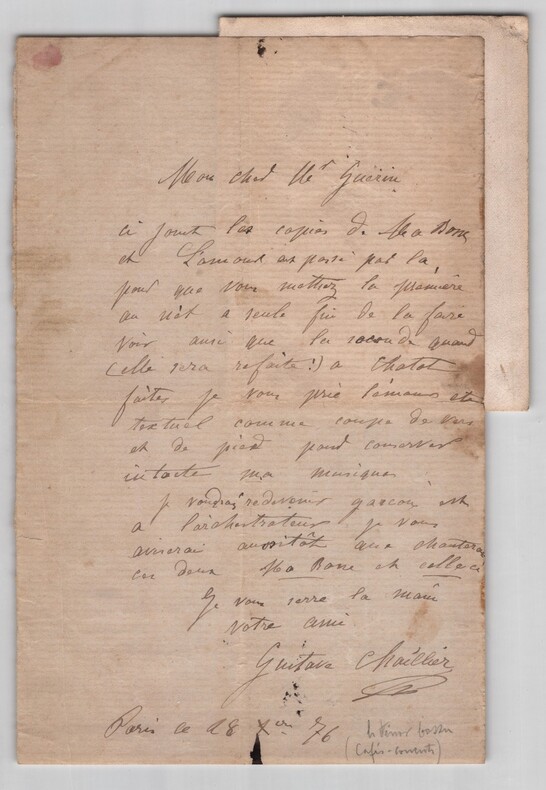 Mon cher Mr Guérin
ci joint les copies de Ma Bonne
et L'amour a passé par là
pour que vous mettiez la première
au net a seule fin de la faire
voir ainsi que la seconde quand
(elle sera refaite!) a Chatot
faites je vous prie
textuel comme coupe de vers
et de pied pour conserver
intacte ma musique
je voudrais redevenir garçon est
a l'orchestrateur je vous
aviserai aussitôt que chanterai
en deux Ma Bonne et celle ci
Je vous serre la main
votre ami
Gustave Chaillier
Paris ce 18 Xbre 76
(Cafés-concerts)